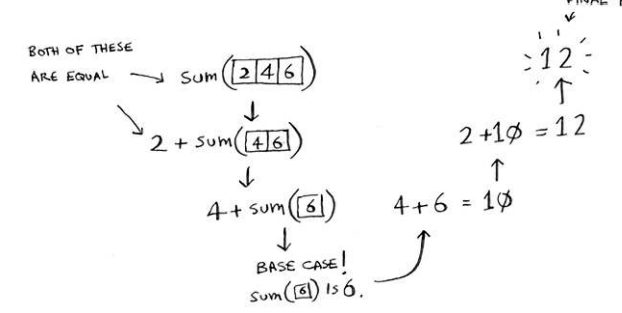 BOTH OF THESE
ARE EQUAL
sum(2 4 6)
2 + sum(4 6)
4 + sum(6)
BASE CASE!
sum(6) IS 6.
4 + 6 = 10
2 + 10 = 12
12